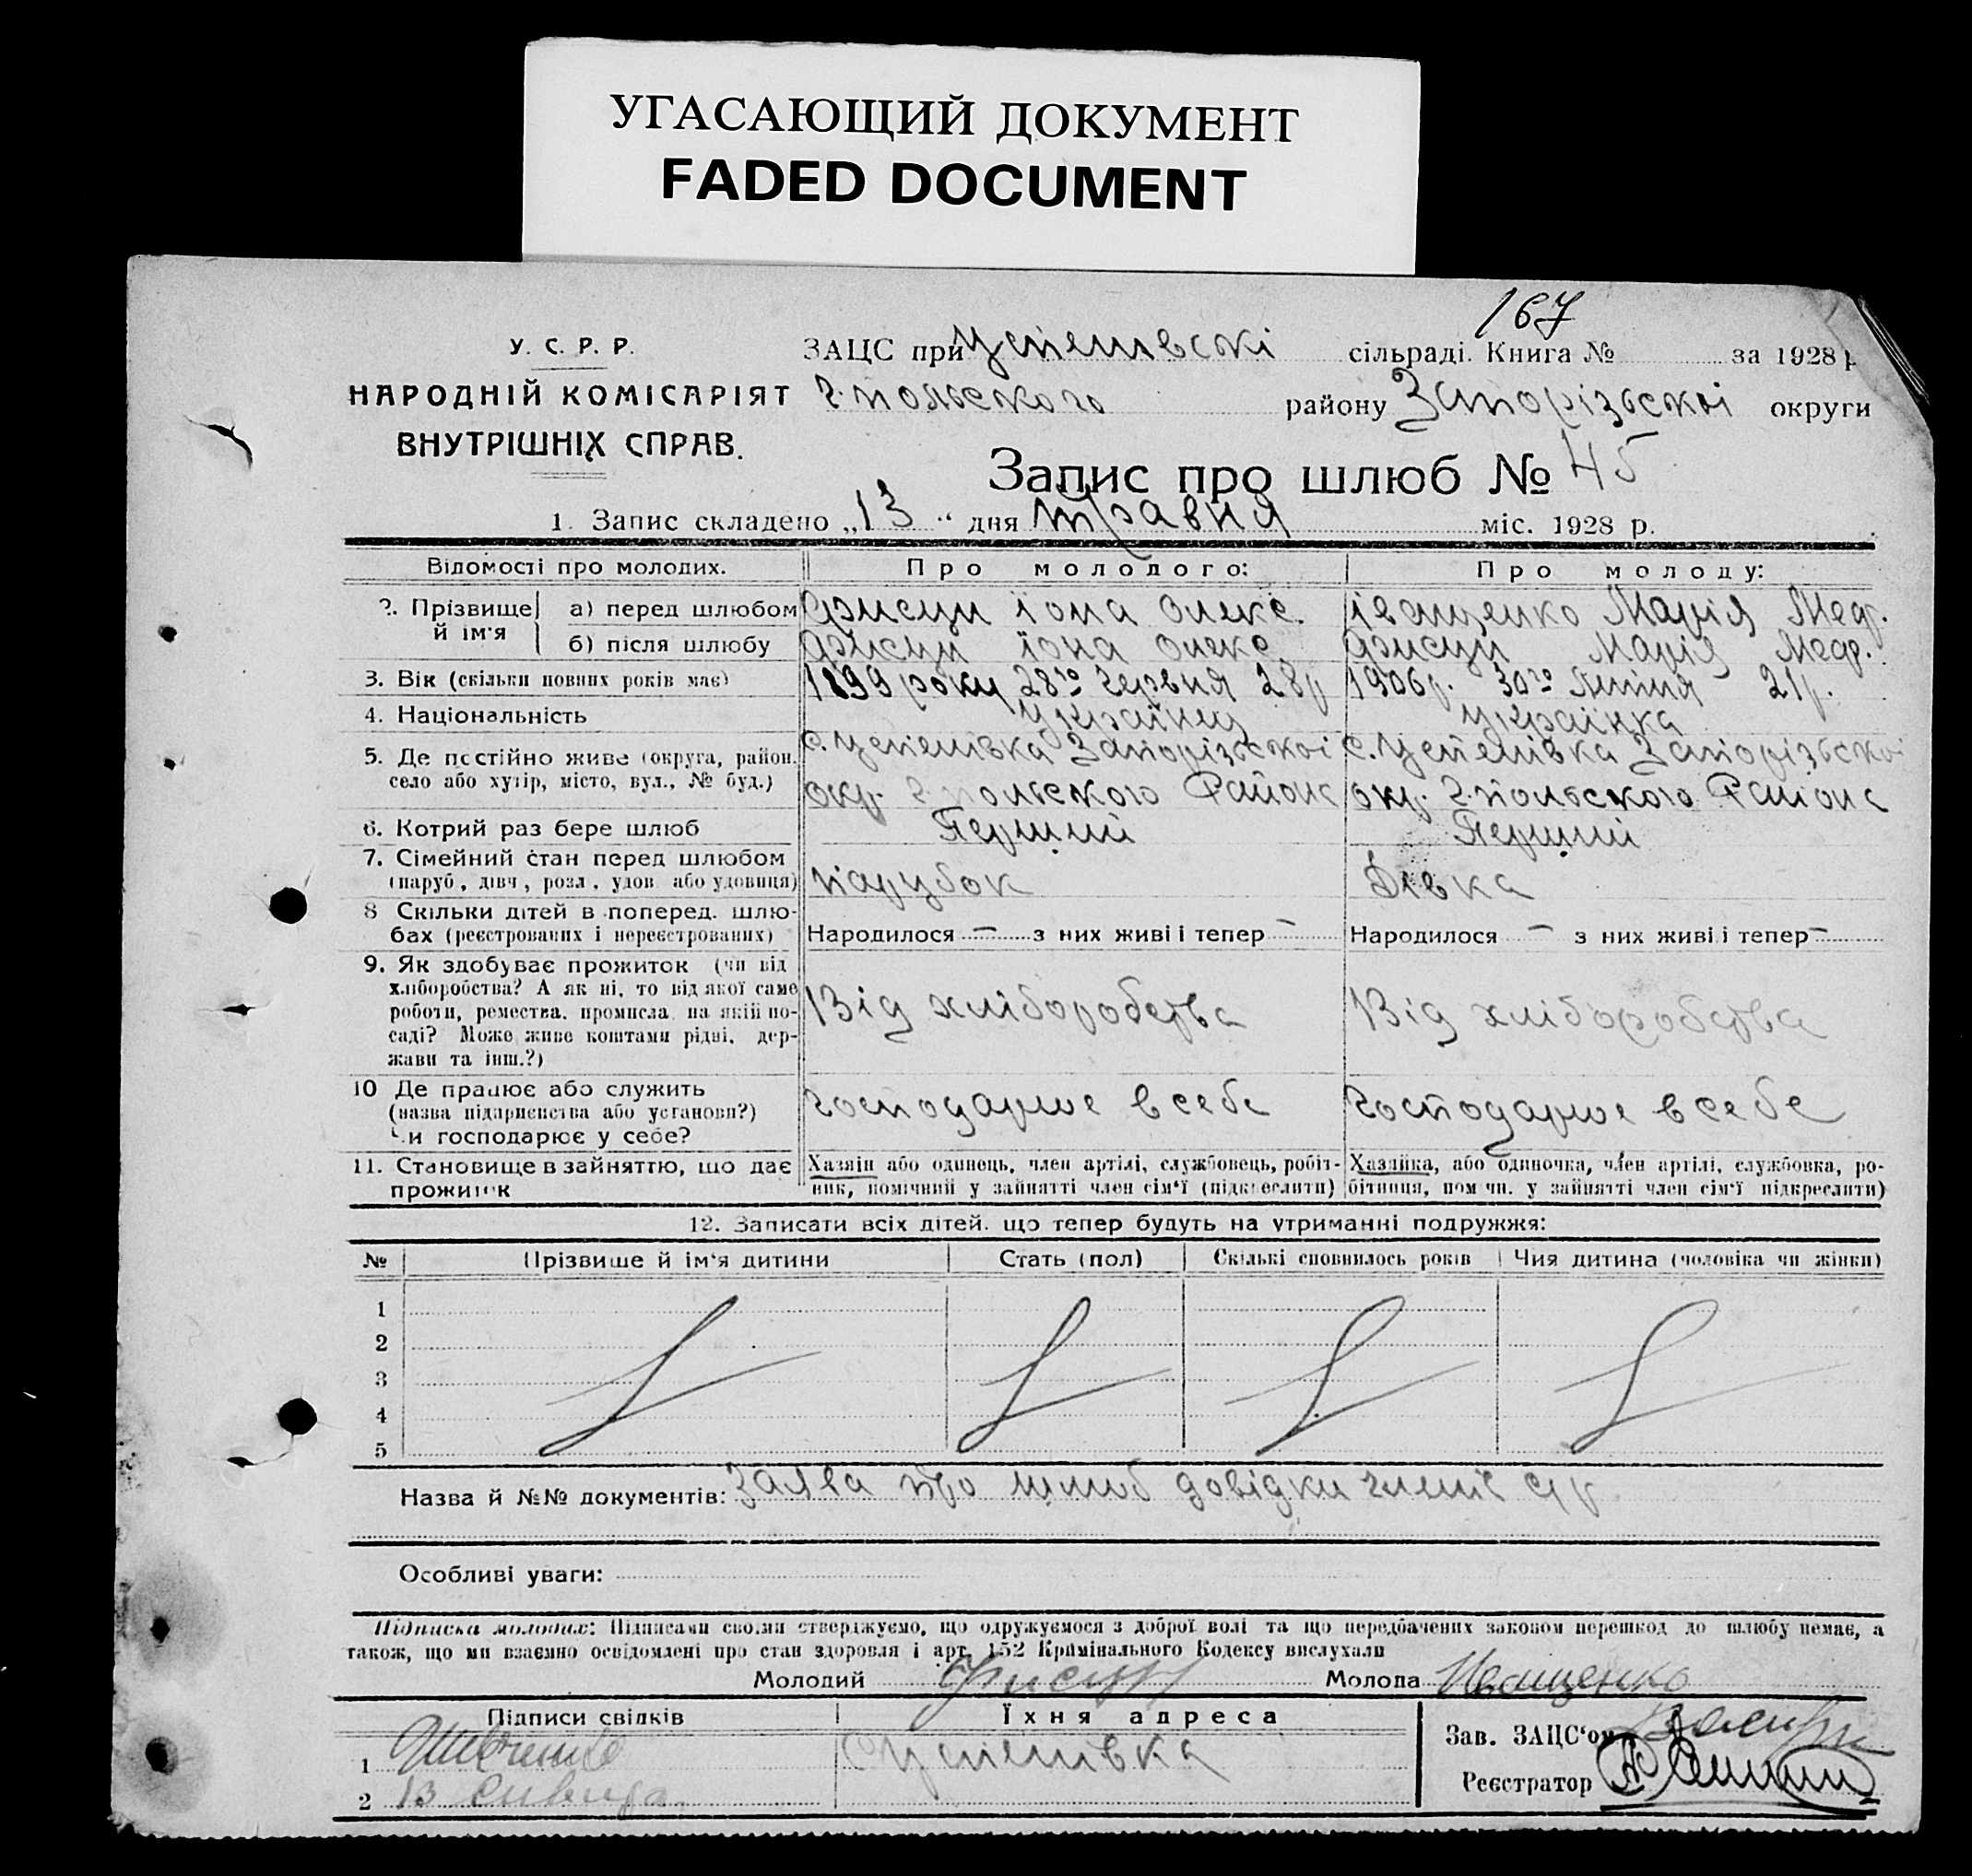 УГАСАЮЩИЙ ДОКУМЕНТ
FADED DOCUMENT
167
У. С. Р. Р.
НАРОДНІЙ КОМІСАРІЯТ
ВНУТРІШНІХ СПРАВ.
ЗАЦС при Успенівські сільраді. Книга № за 1928 р
Г.польского району Запорізьскої округи
Запис про шлюб № 45
1. Запис складено „13“ дня травня міс. 1928 р.
Відомості про молодих. Про молодого: Про молоду:
2. Прізвище й ім'я
а) перед шлюбом Фисун Іона Олекс. Іващенко Марія Меф.
б) після шлюбу Фисун Іона Олекс Фисун Марія Меф.
3. Вік (скільки повних років має) 1899 року 28го Червня 28р 1906р. 30го Липня 21р.
4. Національність українец українка
5. Де постійно живе (округа, район, село або хутір, місто, вул., № буд.)
с. Успенівка Запорізьскої окр. Г.польского Района
с. Успенівка Запорізьскої окр. Г.польского Района
6. Котрий раз бере шлюб Перший Перший
7. Сімейний стан перед шлюбом
(паруб., дівч., розл., удов. або удовиця) парубок Дівка
8 Скільки дітей в поперед. шлюбах (реєстрованих і нереєстрованих) Народилося — з них живі і тепер — Народилося — з них живі і тепер —
9. Як здобуває прожиток (чи від
хліборобства? А як ні, то від якої саме
роботи, ремества, промисла, на якій по-
саді? Може живе коштами рідні, дер-
жави та інш.?)
Від хліборобства Від хліборобства
10 Де працює або служить
(назва підприємства або установи?)
Чи господарює у себе?
господарює в себе господарює в себе
11. Становище в зайняттю, що дає прожиток
Хазяїн або одинець, член артілі, службовець, робіт-
ник, помічний у зайнятті член сім'ї (підкреслити)
Хазяйка, або одиночка, член артілі, службовка, ро-
бітниця, помічн. у зайнятті член сім'ї підкреслити)
12. Записати всіх дітей, що тепер будуть на утриманні подружжя:
№ Прізвище й ім'я дитини Стать (пол) Скількі сповнилось років Чия дитина (чоловіка чи жінки)
1
2
3
4
5
Назва й №№ документів: Заява про шлюб довідки
Особливі уваги:
Підписка молодих: Підписами своїми стверджуємо, що одружуємося з доброї волі та що передбачених законом перешкод до шлюбу немає, а
також, що ми взаємно освідомлені про стан здоровля і арт. 152 Крімінального Кодексу вислухали
Молодий Фисун Молода Иващенко
Підписи свідків Їхня адреса
1 Шевченко с Успенівка
2
Зав. ЗАЦС'ом
Реєстратор